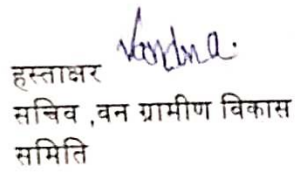 Vandna.
हस्ताक्षर
सचिव ,वन ग्रामीण विकास
समिति